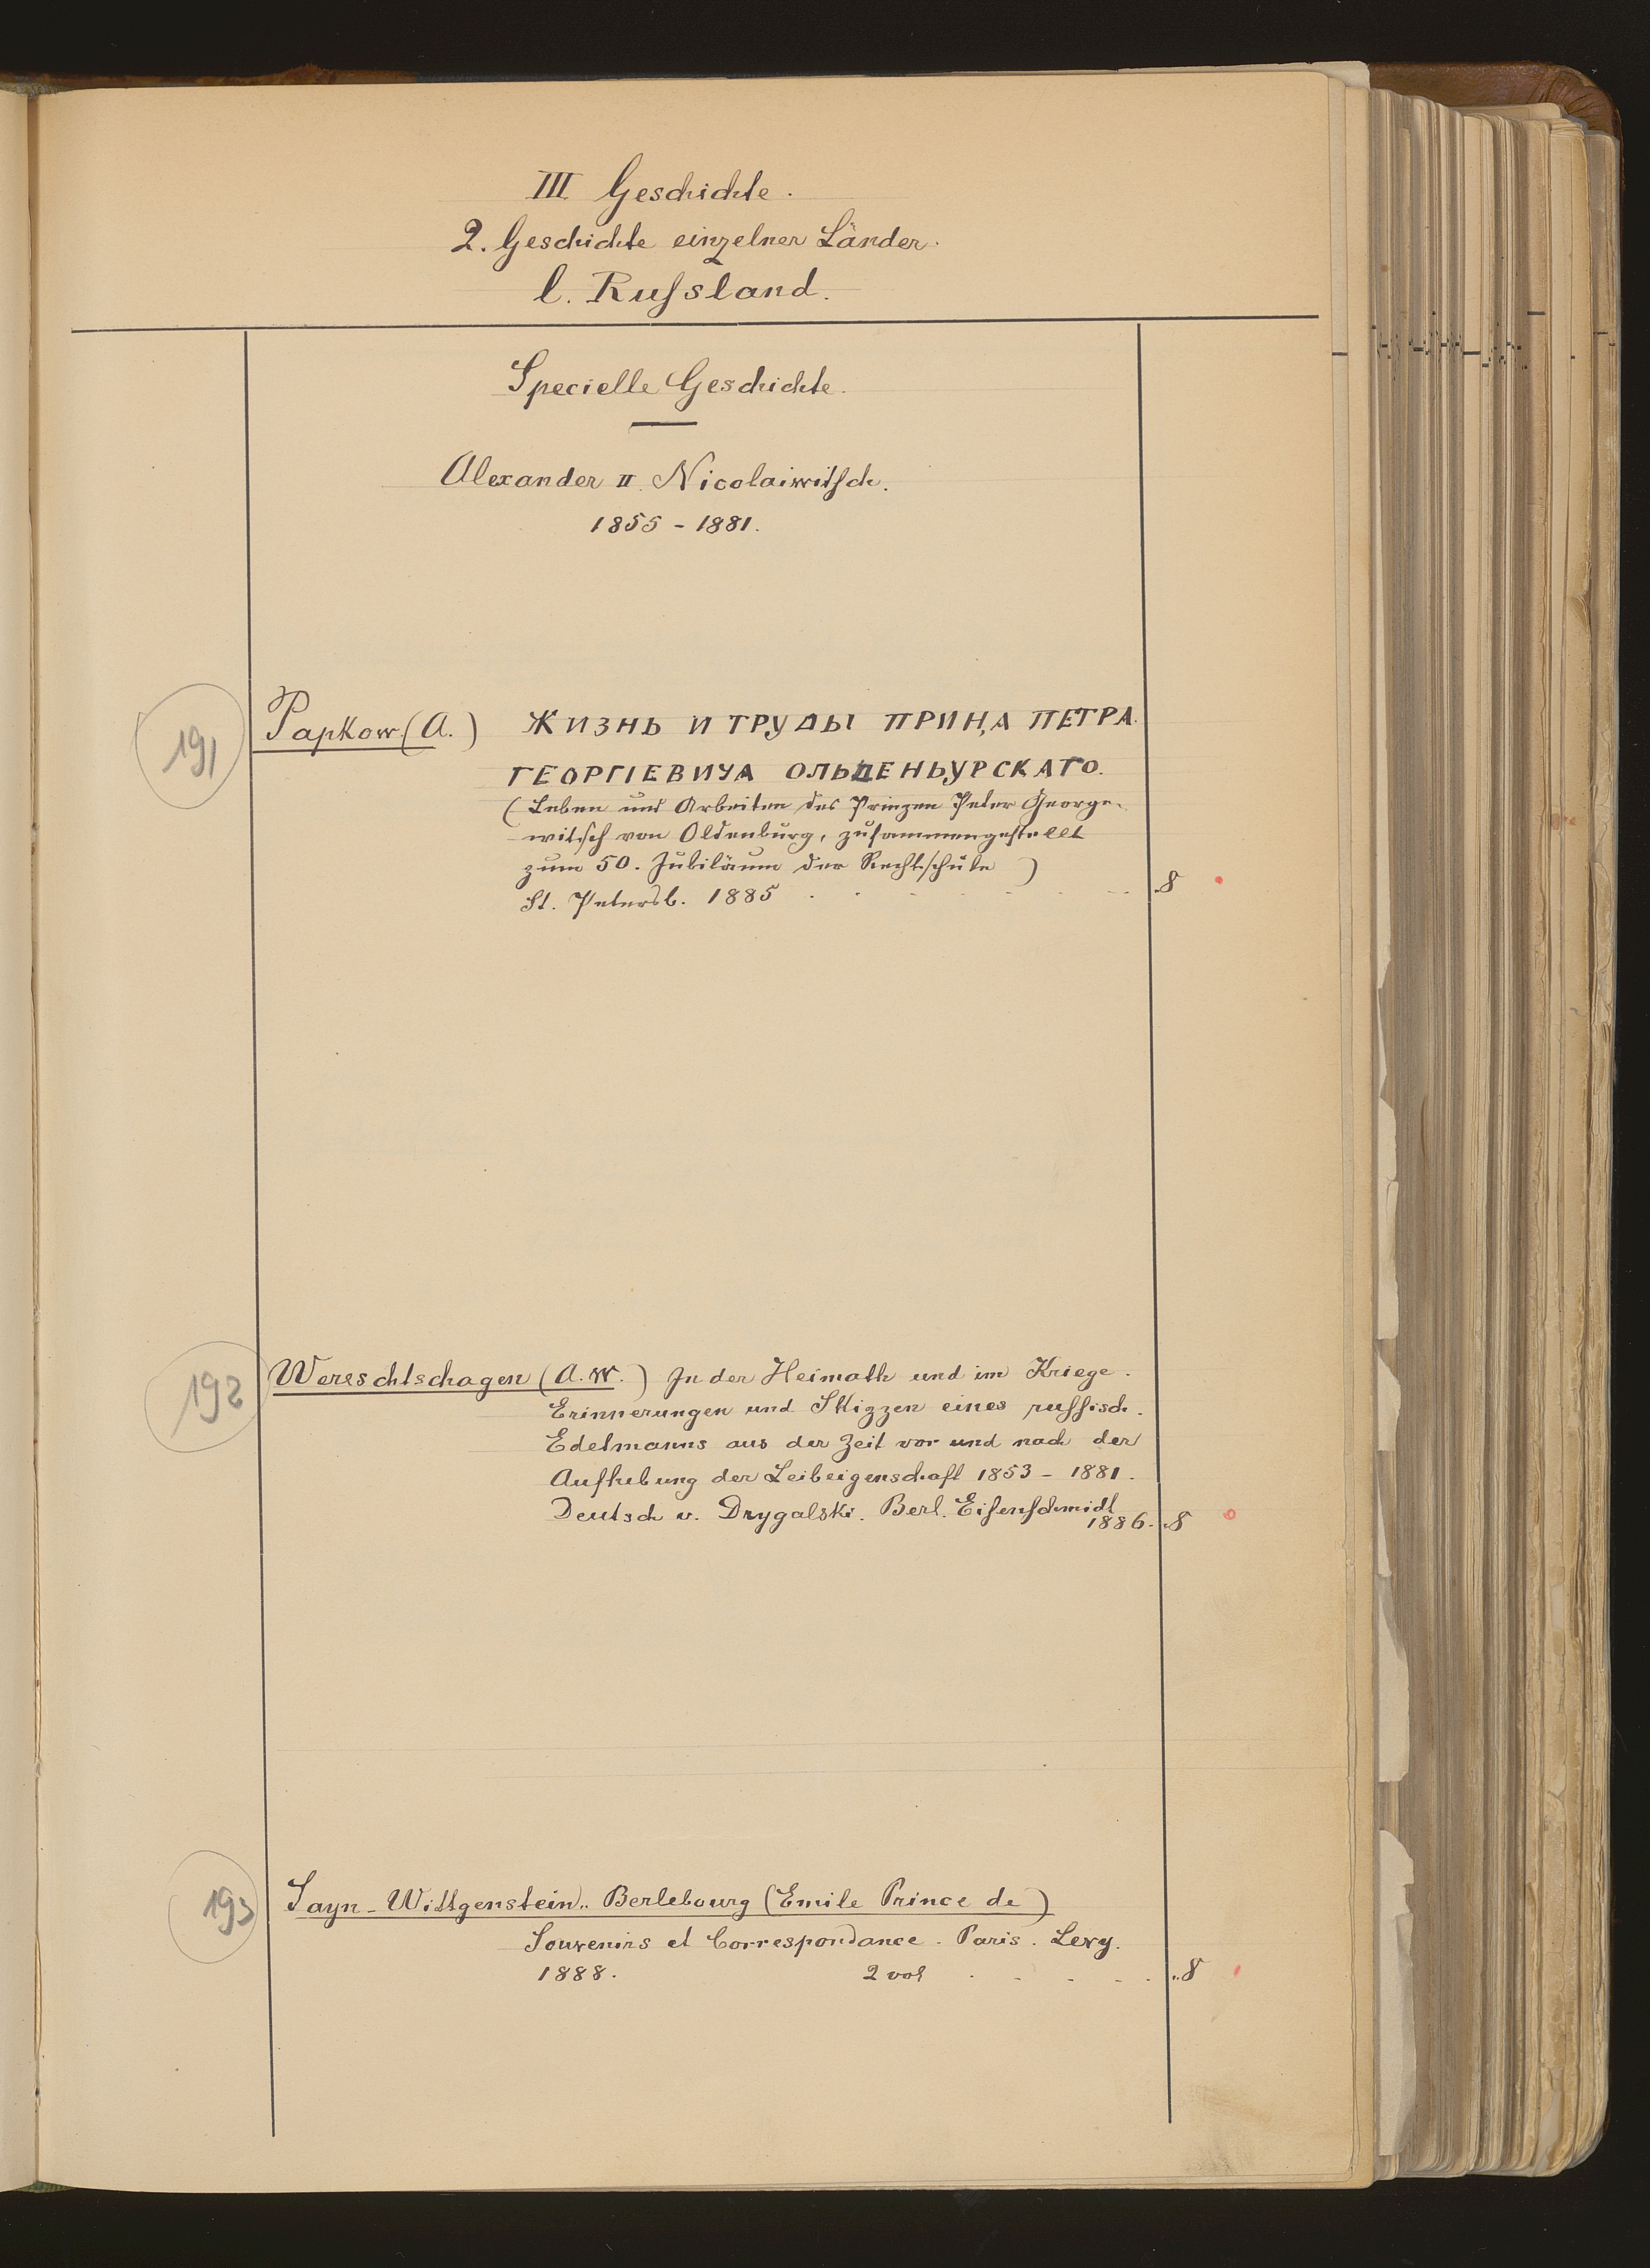 III Geschichte.
2. Geschichte einzelner Länder.
l. Ruſsland.
Specielle Geschichte.
Alexander II. Nicolaiwitſch.
1855 - 1881.
191
Papkow (A.) ЖИЗНЬ И ТРУДЫ ПРИНЦА ПЕТРА
ГЕОРГІЕВИЧА ОЛЬДЕНЬУРСКАГО.
(Leben und Arbeiten des Prinzen Peter George-
witsch von Oldenburg, zuſammengeſtellt
zum 50. Jubiläum der Rechtsſchule)
St. Petersb. 1885 . . . . . . . 8
192
Wereschtschagen (A. W.) In der Heimath und im Kriege.
Erinnerungen und Skizzen eines ruſſisch.
Edelmanns aus der Zeit vor und nach der
Aufhebung der Leibeigenschaft 1853 - 1881.
Deutsch v. Drygalski. Berl. Eiſenſchmidt
1886. 8
193
Sayn-Wittgenstein-Berlebourg (Emile Prince de)
Souvenirs et Correspondance. Paris. Levy.
1888. 2 vol . . . . . 8